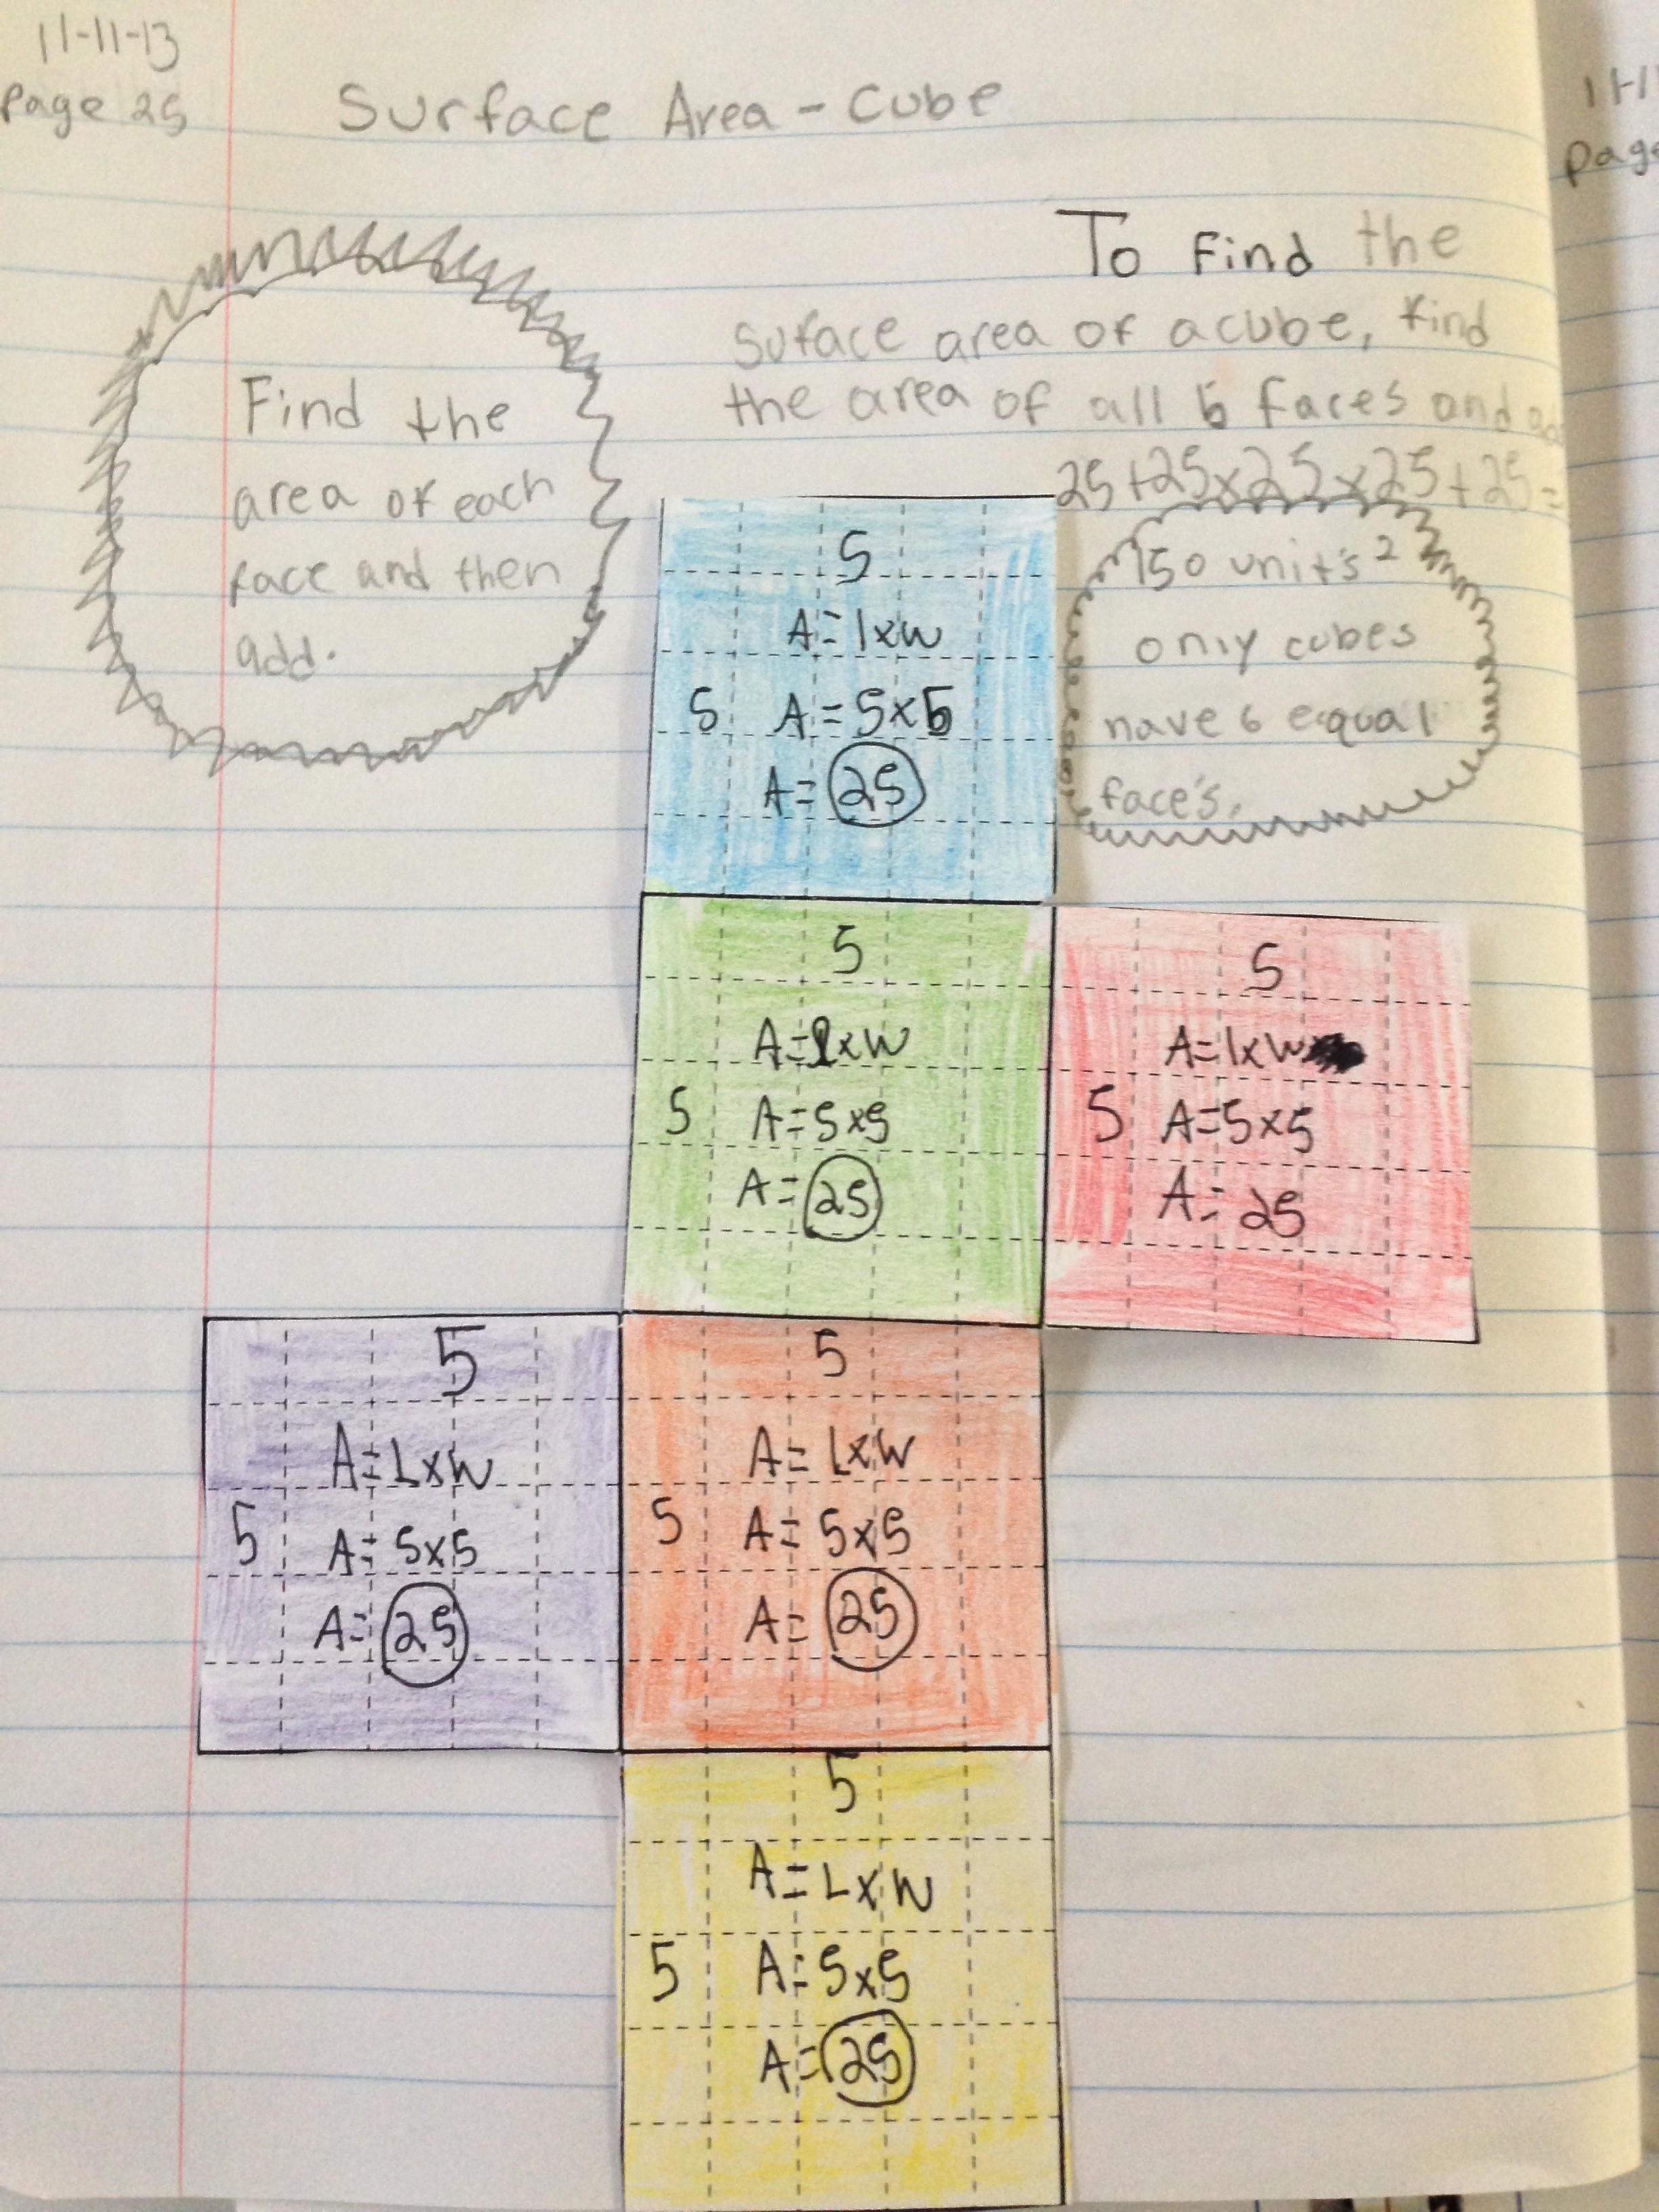 11-11-13
Page 25
Surface Area - Cube
11-1
page
To Find the
Suface area of a cube, find
the area of all 6 faces and
25+25x25x25+25=
150 unit's 2
only cubes
have 6 equal
face's.
Find the
area of each
face and then
add.
5
A=lxw
5 A=5x5
A=25
5
A=lxw
5 A=5x5
A=25
5
A=lxw
5 A=5x5
A=25
5
A=Lxw
5 A=5x5
A=25
5
A=Lxw
5 A=5x5
A=25
5
A=Lxw
5 A=5x5
A=25